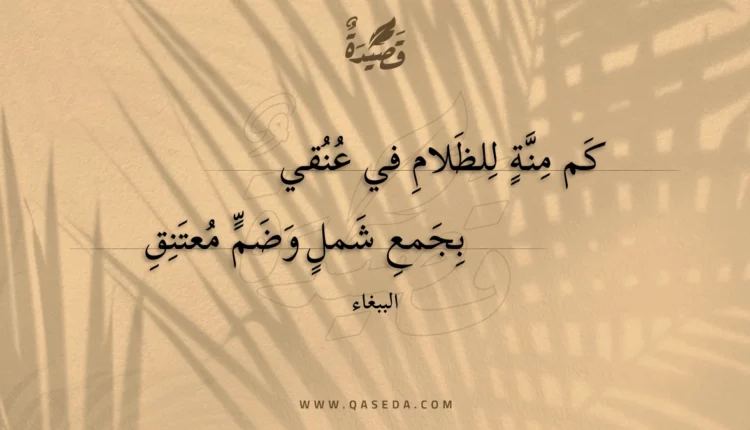 قَصِيْدَةٌ
كَم مِنَّةٍ لِلظَلامِ في عُنُقي
بِجَمعِ شَملٍ وَضَمٍّ مُعتَنِقِ
الببغاء
WWW.QASEDA.COM